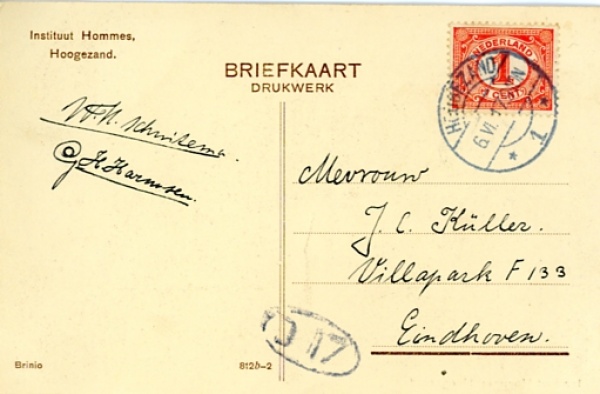 Instituut Hommes,
Hoogezand.
BRIEFKAART
DRUKWERK
NEDERLAND
1
CENT
6 VI
1
W.H. Schuitema
G.H. Harmsen.
Mevrouw
J. C. Küller.
Villapark F 133
Eindhoven.
17
Brinio
812b-2